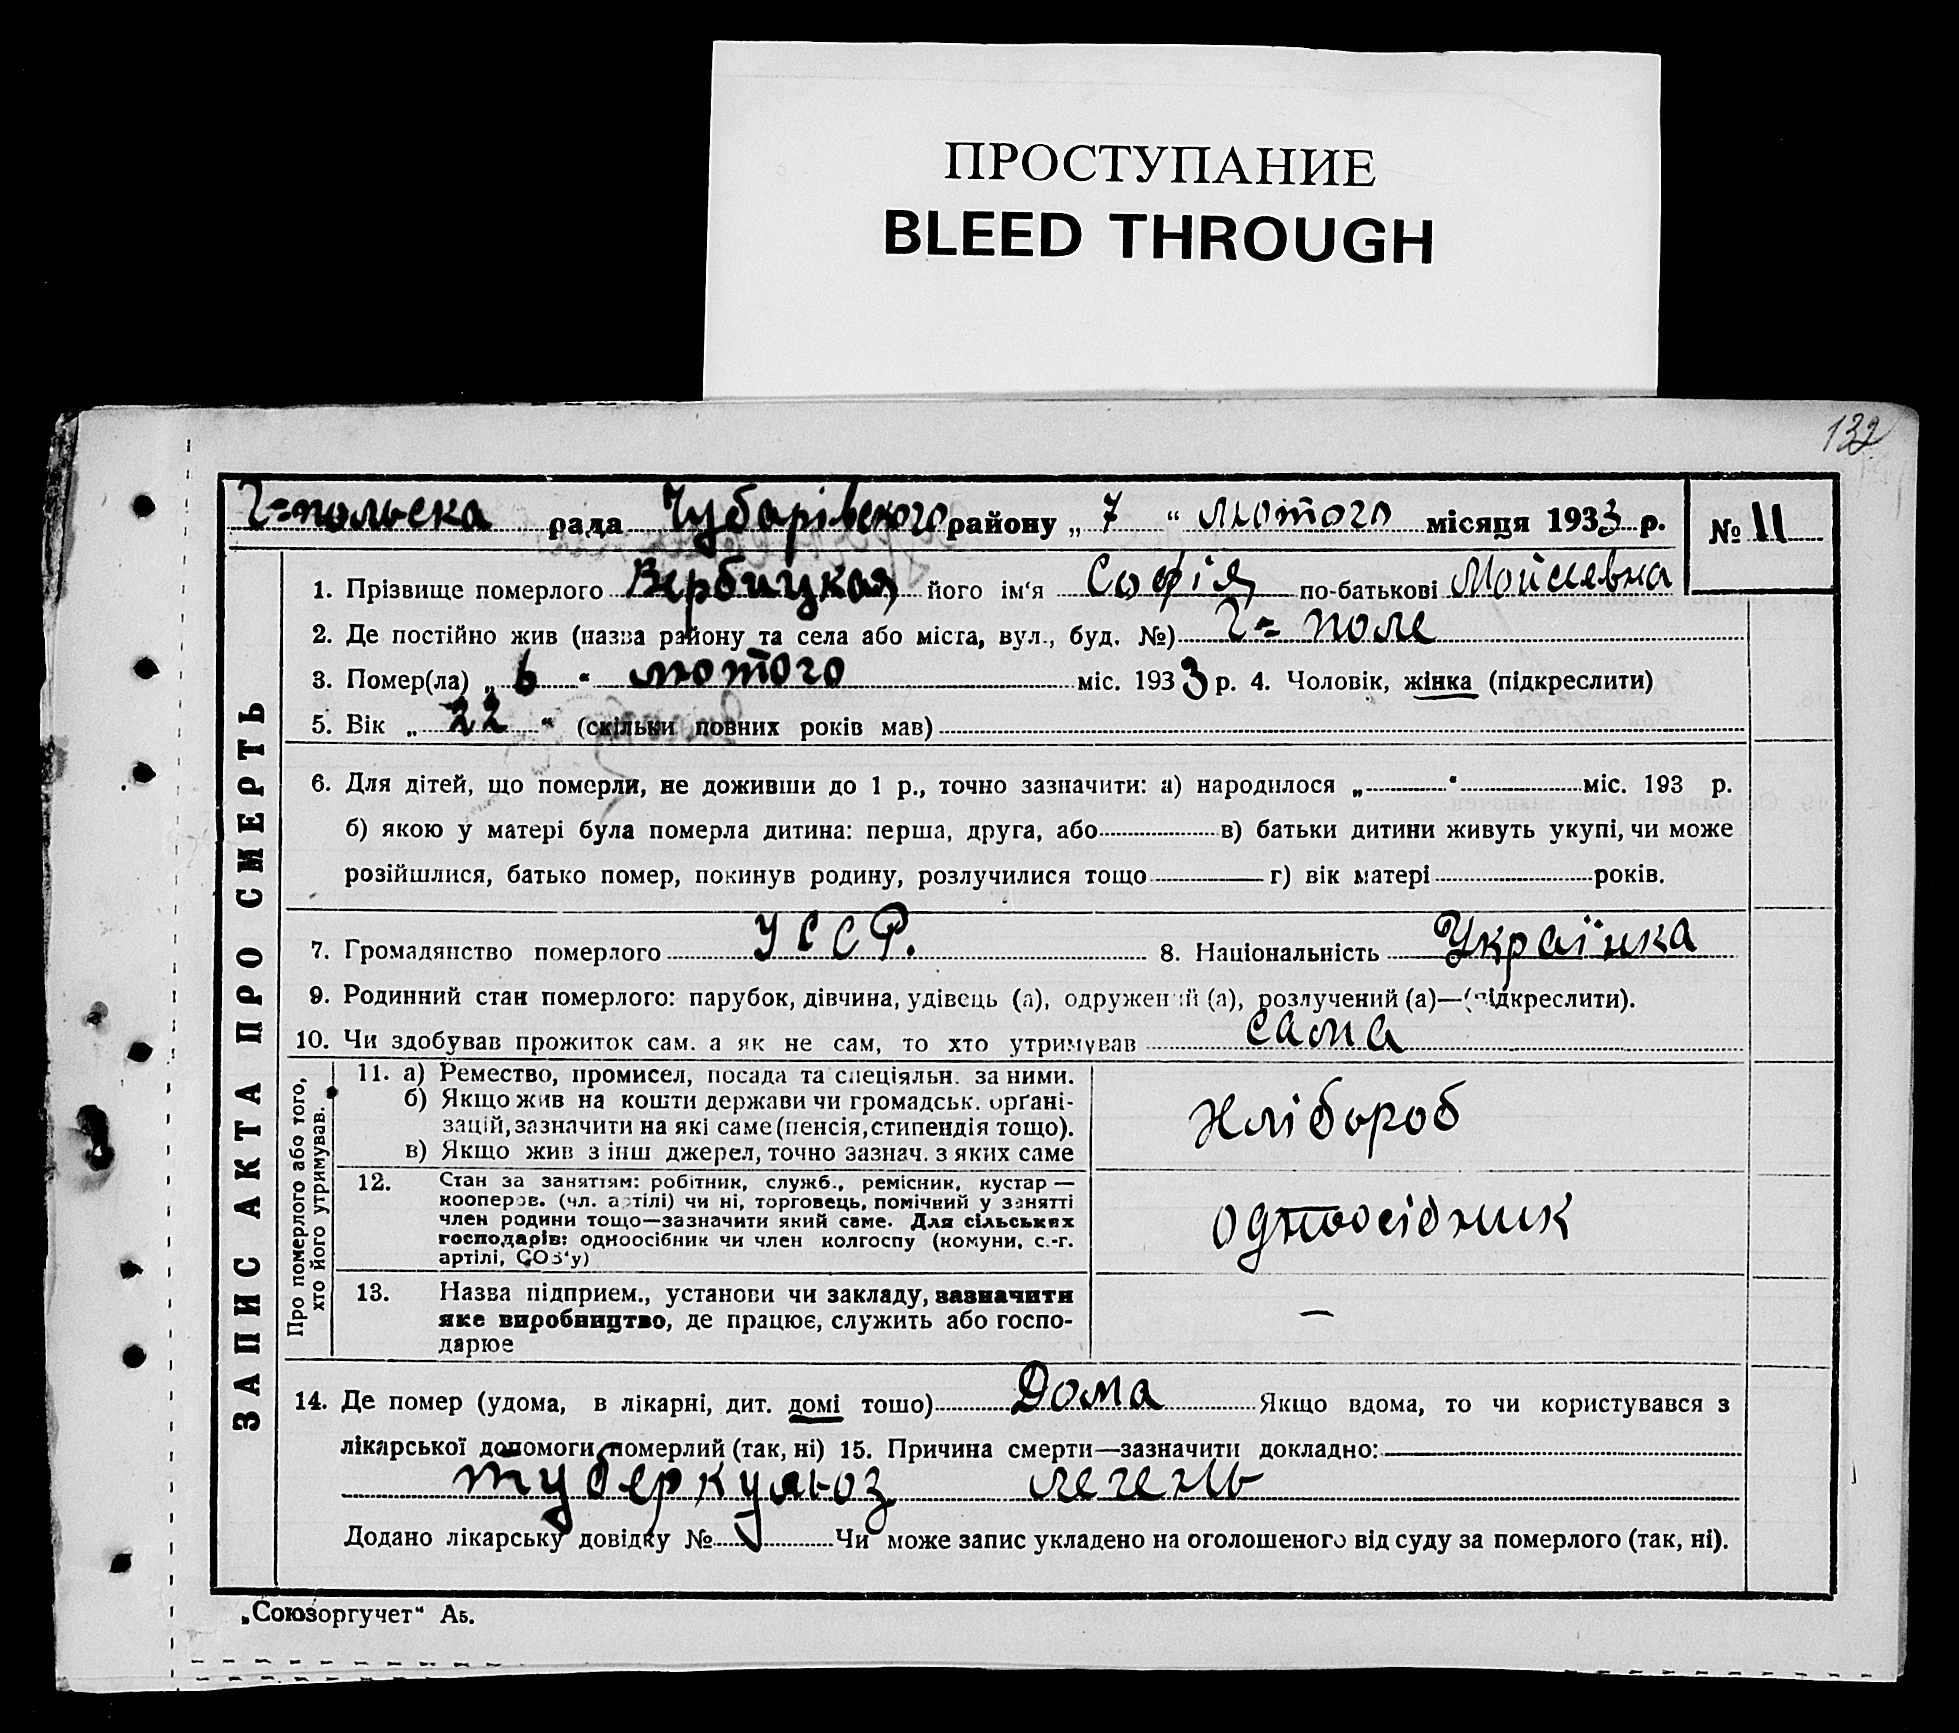 ПРОСТУПАНИЕ
BLEED THROUGH
132
Г=польска рада Чубарівського району „ 7 “ лютого місяця 1933 р. № 11
ЗАПИС АКТА ПРО СМЕРТЬ
1. Прізвище померлого Вербицкая його ім'я Софія по-батькові Мойсеевна
2. Де постійно жив (назва району та села або міста, вул., буд. №) Г= поле
3. Помер(ла) „ 6 “ лютого міс. 1933 р. 4. Чоловік, жінка (підкреслити)
5. Вік „ 22 “ (скільки повних років мав)
6. Для дітей, що померли, не доживши до 1 р., точно зазначити: а) народилося „ “ міс. 193 р.
б) якою у матері була померла дитина: перша, друга, або в) батьки дитини живуть укупі, чи може
розійшлися, батько помер, покинув родину, розлучилися тощо г) вік матері років.
7. Громадянство померлого УССР. 8. Національність Українка
9. Родинний стан померлого: парубок, дівчина, удівець (а), одружений (а), розлучений (а)—(підкреслити).
10. Чи здобував прожиток сам, а як не сам, то хто утримував сама
Про померлого або того,
хто його утримував.
11. а) Ремество, промисел, посада та спеціяльн. за ними.
б) Якщо жив на кошти держави чи громадськ. орґані-
зацій, зазначити на які саме (пенсія, стипендія тощо).
в) Якщо жив з інш джерел, точно зазнач. з яких саме
Хлібороб
12. Стан за заняттям: робітник, служб., ремісник, кустар —
кооперов. (чл. артілі) чи ні, торговець, помічний у занятті
член родини тощо—зазначити який саме. Для сільських
господарів: одноосібник чи член колгоспу (комуни, с.-г.
артілі, СОЗ'у)
одноосібник
13. Назва підприєм., установи чи закладу, зазначити
яке виробництво, де працює, служить або госпо-
дарює
—
14. Де помер (удома, в лікарні, дит. домі тощо) Дома Якщо вдома, то чи користувався з
лікарської допомоги померлий (так, ні) 15. Причина смерти—зазначити докладно:
туберкульоз легень
Додано лікарську довідку № Чи може запис укладено на оголошеного від суду за померлого (так, ні).
„Союзоргучет“ Аб.